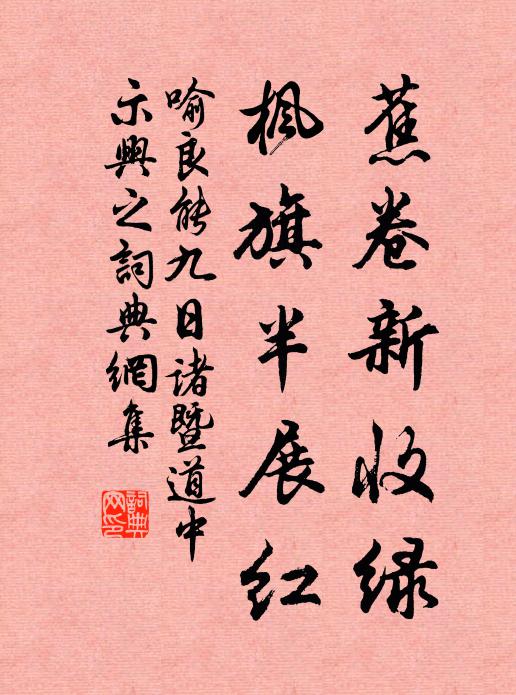 蕉卷新收緑
楓旗半展红
喻良能九日诸暨道中
示興之詞典網集
詞典
网印